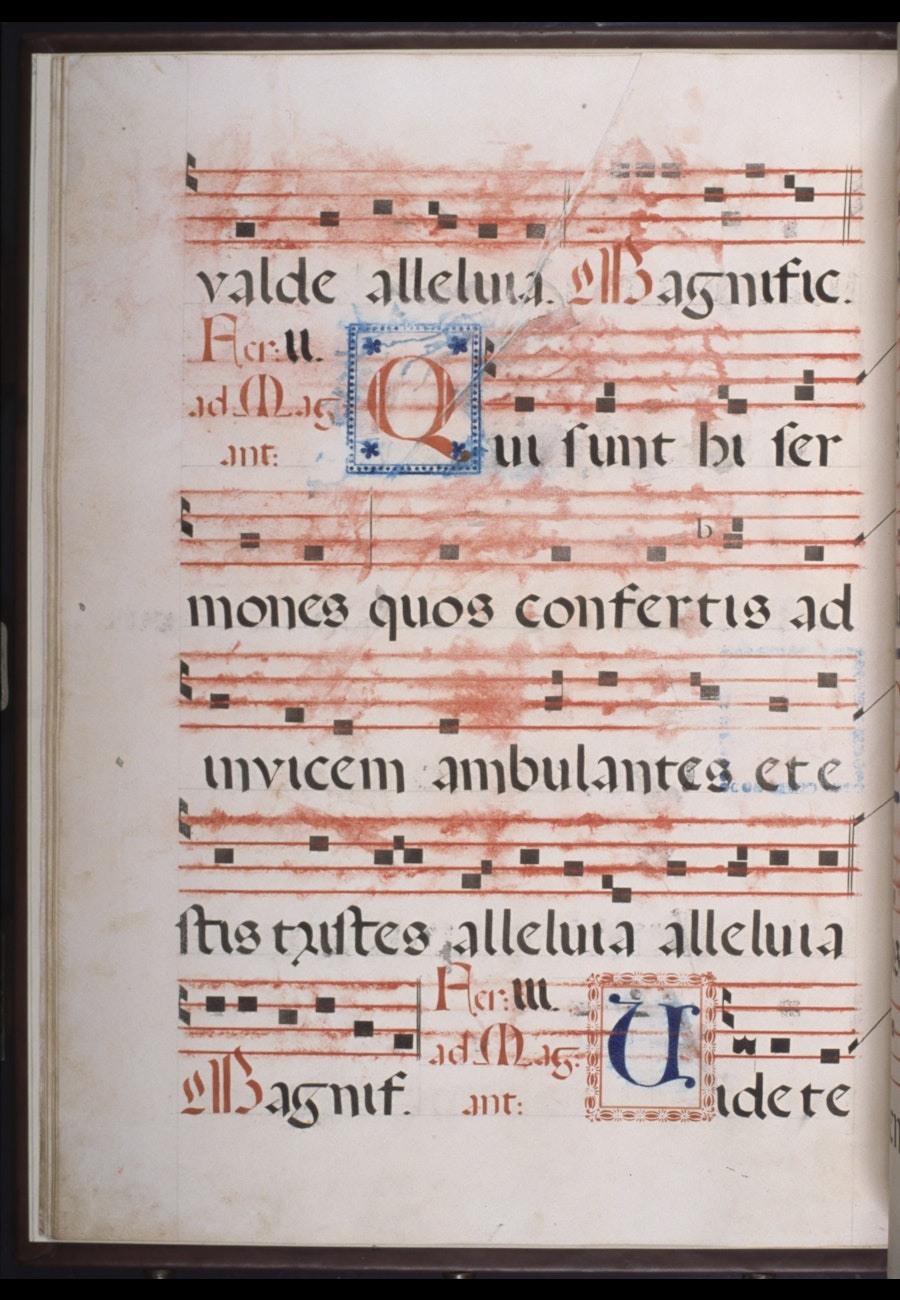 valde alleluia. Magnific.
Fer: II.
ad Mag
ant:
Qui sunt hi ser
b
mones quos confertis ad
invicem ambulantes et e
stis tristes alleluia alleluia
Magnif.
Fer: III.
ad Mag:
ant:
Videte